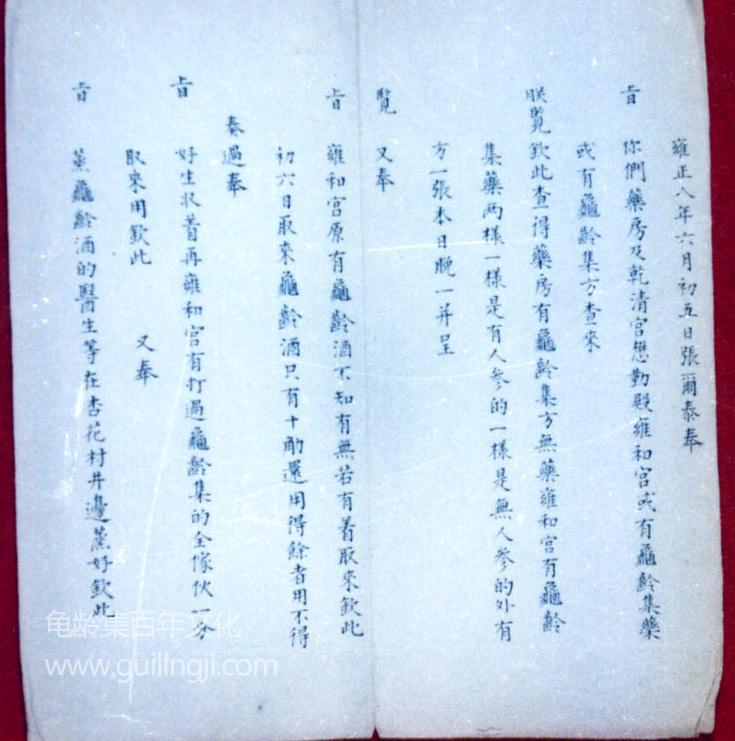 雍正八年六月初五日張爾泰奉
旨你們藥房及乾清宮懋勤殿雍和宮或有龜齡集藥
或有龜齡集方查來
朕覽欽此查得藥房有龜齡集方無藥雍和宮有龜齡
集藥两樣一樣是有人參的一樣是無人參的外有
方一張本日晚一并呈
覽 又奉
旨雍和宮原有龜齡酒不知有無若有着取來欽此
初六日取來龜齡酒只有十觔還用得餘者用不得
奏過奉
旨好生收着再雍和宮有打過龜齡集的全傢伙一分
取來用欽此 又奉
旨蒸龜齡酒的醫生等在杏花村井邊蒸好欽此
龟龄集百年文化
www.guilingji.com